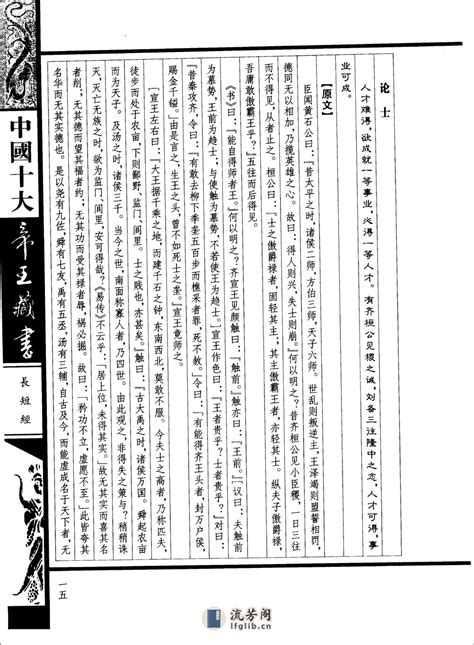 论 士
人才难得，欲成就一等事业，必得一等人才。有齐桓公见稷之诚，刘备三往隆中之志，人才可得，事
业可成。
【原文】
臣闻黄石公曰：“昔太平之时，诸侯二师，方伯三师，天子六师。世乱则叛逆生，王泽竭则盟誓相罚，
德同无以相加，乃揽英雄之心。故曰：得人则兴，失士则崩。”何以明之？昔齐桓公见小臣稷，一日三往
而不得见，从者止之。桓公曰：“士之傲爵禄者，固轻其主；其主傲霸王者，亦轻其士。纵夫子傲爵禄，
吾庸敢傲霸王乎？”五往而后得见。
《书》曰：“能自得师者王。”何以明之？齐宣王见颜触曰：“触前。”触亦曰：“王前。”[议曰：夫触前
为慕势，王前为趋士；与使触为慕势，不若使王为趋士。]宣王作色曰：“王者贵乎？士者贵乎？”对曰：
“昔秦攻齐，令曰：‘有敢去柳下季垄五百步而樵采者罪，死不赦。’令曰：‘有能得齐王头者，封万户侯，
赐金千镒。’由是言之，生王之头，曾不如死士之垄。”宣王竟师之。
[宣王左右曰：“大王据千乘之地，而建千石之钟，东南西北，莫敢不服。今夫士之高者，乃称匹夫，
徒步而处于农亩，下则鄙野、监门、闾里。士之贱也，亦甚矣。”触曰：“古大禹之时，诸侯万国。舜起农亩，
而为天子。及汤之时，诸侯三千。当今之世，南面称寡人者，乃四世。由此观之，非得失之策与？稍稍诛
灭，灭亡无族之时，欲为监门、闾里，安可得哉？《易传》不云乎：‘居上位，未得其实。’故无其实而喜其名
者削，无其德而望其福者约，无其功而受其禄者辱，祸必握。故曰：‘矜功不立，虚愿不至。’此皆夸其
名华而无其实德也。是以尧有九佐，舜有七友，禹有五丞，汤有三辅，自古及今，而能虚成名于天下者，无
中國十大
帝王藏書
長短經
一五
流芳阁
lfglib.cn